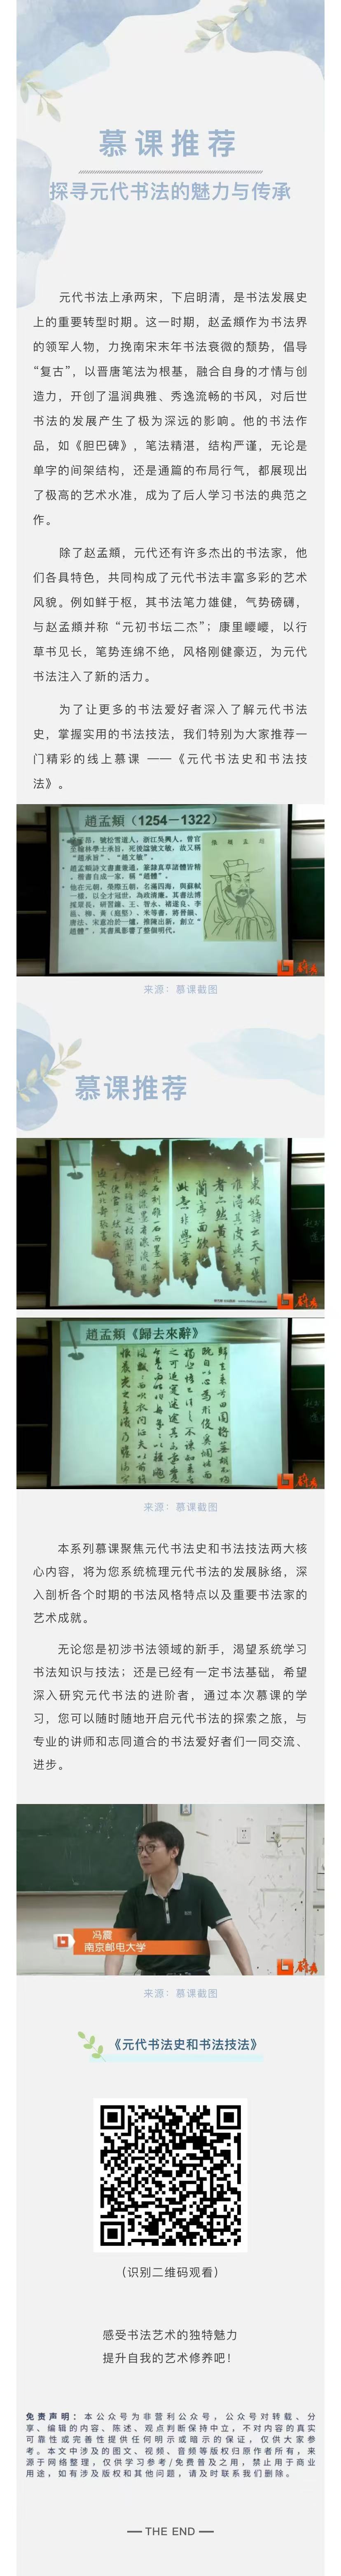 慕课推荐
探寻元代书法的魅力与传承
元代书法上承两宋，下启明清，是书法发展史
上的重要转型时期。这一时期，赵孟頫作为书法界
的领军人物，力挽南宋末年书法衰微的颓势，倡导
“复古”，以晋唐笔法为根基，融合自身的才情与创
造力，开创了温润典雅、秀逸流畅的书风，对后世
书法的发展产生了极为深远的影响。他的书法作
品，如《胆巴碑》，笔法精湛，结构严谨，无论是
单字的间架结构，还是通篇的布局行气，都展现出
了极高的艺术水准，成为了后人学习书法的典范之
作。
除了赵孟頫，元代还有许多杰出的书法家，他
们各具特色，共同构成了元代书法丰富多彩的艺术
风貌。例如鲜于枢，其书法笔力雄健，气势磅礴，
与赵孟頫并称“元初书坛二杰”；康里巎巎，以行
草书见长，笔势连绵不绝，风格刚健豪迈，为元代
书法注入了新的活力。
为了让更多的书法爱好者深入了解元代书法
史，掌握实用的书法技法，我们特别为大家推荐一
门精彩的线上慕课 ——《元代书法史和书法技
法》。
趙孟頫（1254－1322）
来源：慕课截图
慕课推荐
趙孟頫《歸去來辭》
来源：慕课截图
本系列慕课聚焦元代书法史和书法技法两大核
心内容，将为您系统梳理元代书法的发展脉络，深
入剖析各个时期的书法风格特点以及重要书法家的
艺术成就。
无论您是初涉书法领域的新手，渴望系统学习
书法知识与技法；还是已经有一定书法基础，希望
深入研究元代书法的进阶者，通过本次慕课的学
习，您可以随时随地开启元代书法的探索之旅，与
专业的讲师和志同道合的书法爱好者们一同交流、
进步。
冯震
南京邮电大学
来源：慕课截图
《元代书法史和书法技法》
（识别二维码观看）
感受书法艺术的独特魅力
提升自我的艺术修养吧！
免责声明：本公众号为非营利公众号，公众号对转载、分
享、编辑的内容、陈述、观点判断保持中立，不对内容的真实
可靠性或完善性提供任何明示或暗示的保证，仅供大家参
考。本文中涉及的图文、视频、音频等版权归原作者所有，来
源于网络整理，仅供学习参考/免费普及之用，禁止用于商业
用途，如有涉及版权和其他问题，请及时联系我们删除。
THE END